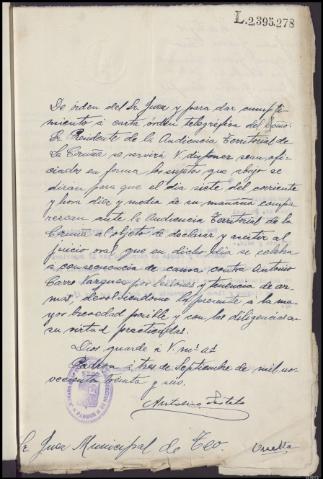 L.2395.278
De orden del Sr Juez y para dar cumpli-
miento á carta órden telegráfica del Señor
Presidente de la Audiencia Territorial de
La Coruña se servirá V. disponer sean
ciados en forma los sujetos que abajo se
dirán para que el dia siete del corriente
y hora diez y media de su mañana compa-
rezcan ante la Audiencia Territorial de la
Coruña al objeto de declarar y asistir al
juicio oral que en dicho dia se celebra
a consecuencia de causa contra Antonio
Carro Vazquez por lesiones y tenencia de ar-
mas, devolviendome la presente á la ma-
yor brevedad posible y con las diligencias
su virtud practicadas.
Dios guarde á V. m.s a.s
Padron á tres de Septiembre de mil no-
vecientos treinta y uno.
Antonio
Sr Juez Municipal de Teo.